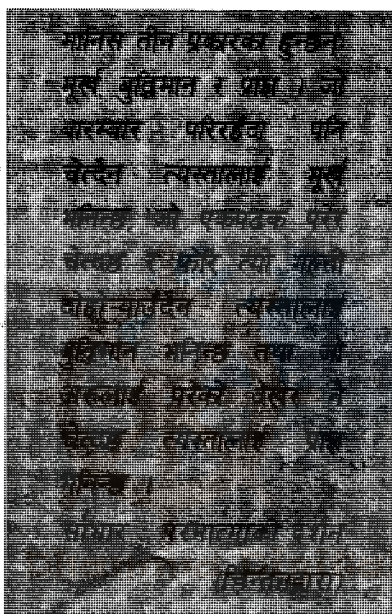 मानिस तीन प्रकारका हुन्छन्
मूर्ख बुद्धिमान र प्राज्ञ । जो
बारम्बार परिरहँदा पनि
चेत्दैन त्यस्तालाई मूर्ख
भनिन्छ, जो एकपटक परेर
चेत्छ र फेरि त्यो गल्ती
दोहोर्‍याउँदैन त्यस्तालाई
बुद्धिमान भनिन्छ तथा जो
अरुलाई परेको देखेर नै
चेत्दछ त्यस्तालाई प्राज्ञ
भनिन्छ ।